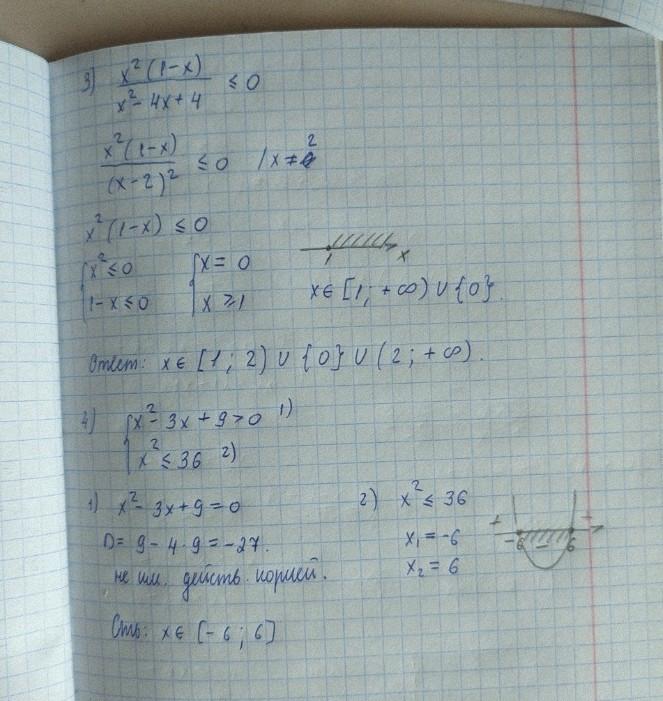 3) x²(1-x) / x²-4x+4 ≤ 0
x²(1-x) / (x-2)² ≤ 0 / x ≠ 2
x²(1-x) ≤ 0
{ x² ≤ 0 { x = 0
1-x ≤ 0 x ≥ 1
1 x
x ∈ [1; +∞) ∪ {0}.
Ответ: x ∈ [1; 2) ∪ {0} ∪ (2; +∞).
4) { x² - 3x + 9 > 0 1)
x² ≤ 36 2)
1) x² - 3x + 9 = 0
D = 9 - 4·9 = -27.
не им. действ. корней.
2) x² ≤ 36
x₁ = -6
x₂ = 6
+ -6 - 6 +
Отв: x ∈ [-6; 6]